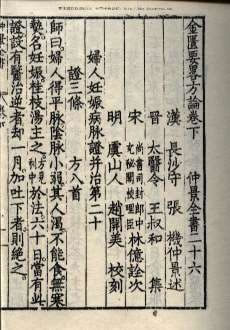 金匱要畧方論卷下 仲景全書二十六
漢 長沙守 張 機仲景述
晉 太醫令 王叔和 集
宋 尚書司封郎中充秘閣校理臣 林億詮次
明 虞山人 趙開美 校刻
婦人妊娠病脉證并治第二十
證三條 方八首
師曰婦人得平脉陰脉小弱其人渴不能食無寒
熱名妊娠桂枝湯主之方見利中於法六十日當有此
證設有醫治逆者却一月加吐下者則絕之